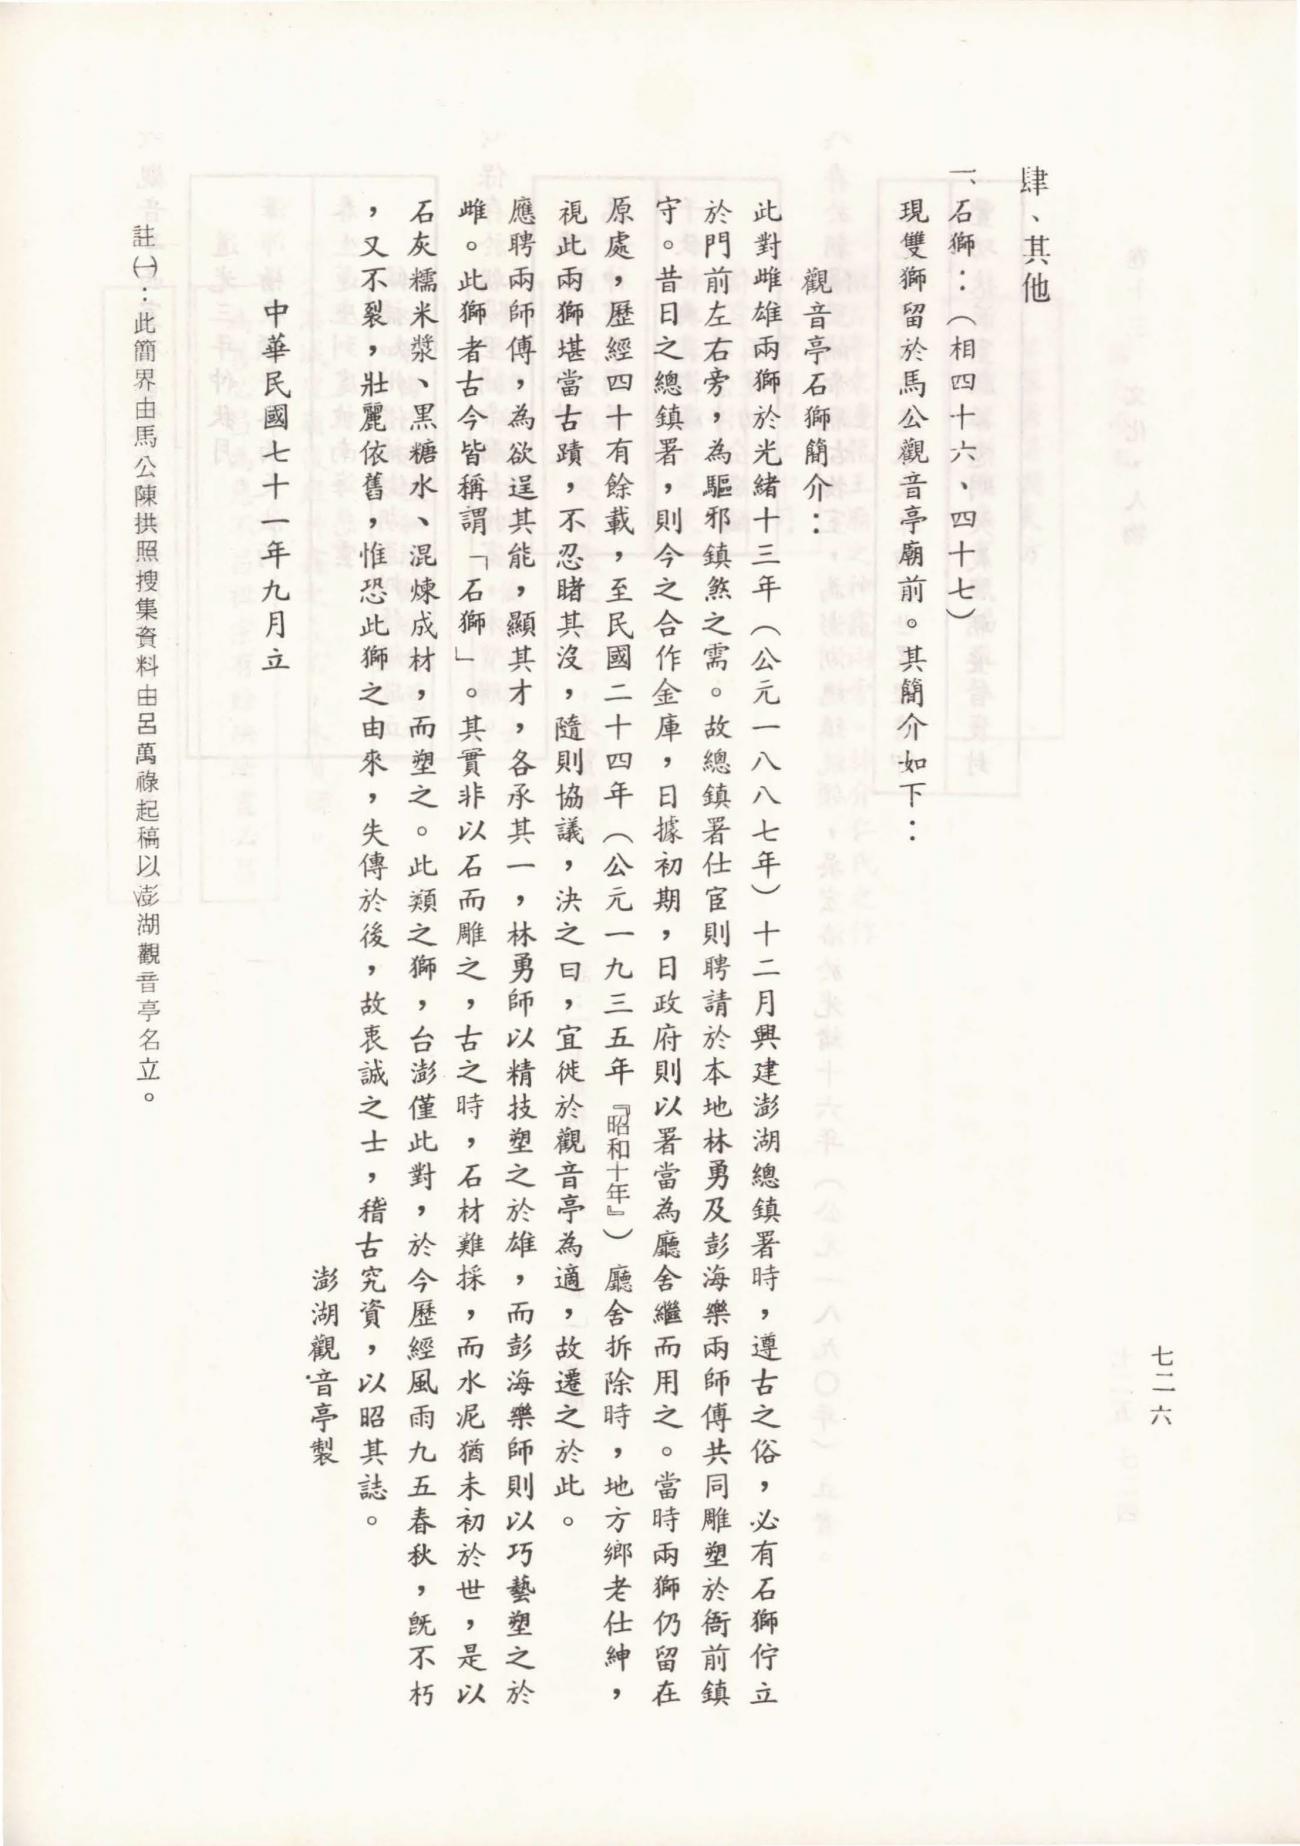 七二六
肆、其他
一、石獅：（相四十六、四十七）
現雙獅留於馬公觀音亭廟前。其簡介如下：
觀音亭石獅簡介：
此對雌雄兩獅於光緒十三年（公元一八八七年）十二月興建澎湖總鎮署時，遵古之俗，必有石獅佇立
於門前左右旁，為驅邪鎮煞之需。故總鎮署仕宦則聘請於本地林勇及彭海樂兩師傅共同雕塑於衙前鎮
守。昔日之總鎮署，則今之合作金庫，日據初期，日政府則以署當為廳舍繼而用之。當時兩獅仍留在
原處，歷經四十有餘載，至民國二十四年（公元一九三五年『昭和十年』）廳舍拆除時，地方鄉老仕紳，
視此兩獅堪當古蹟，不忍睹其沒，隨則協議，決之曰，宜徙於觀音亭為適，故遷之於此。
應聘兩師傅，為欲逞其能，顯其才，各承其一，林勇師以精技塑之於雄，而彭海樂師則以巧藝塑之於
雌。此獅者古今皆稱謂「石獅」。其實非以石而雕之，古之時，石材難採，而水泥猶未初於世，是以
石灰糯米漿、黑糖水、混煉成材，而塑之。此類之獅，台澎僅此對，於今歷經風雨九五春秋，既不朽
，又不裂，壯麗依舊，惟恐此獅之由來，失傳於後，故衷誠之士，稽古究資，以昭其誌。
澎湖觀音亭製
中華民國七十一年九月立
註㈠：此簡界由馬公陳拱照搜集資料由呂萬祿起稿以澎湖觀音亭名立。